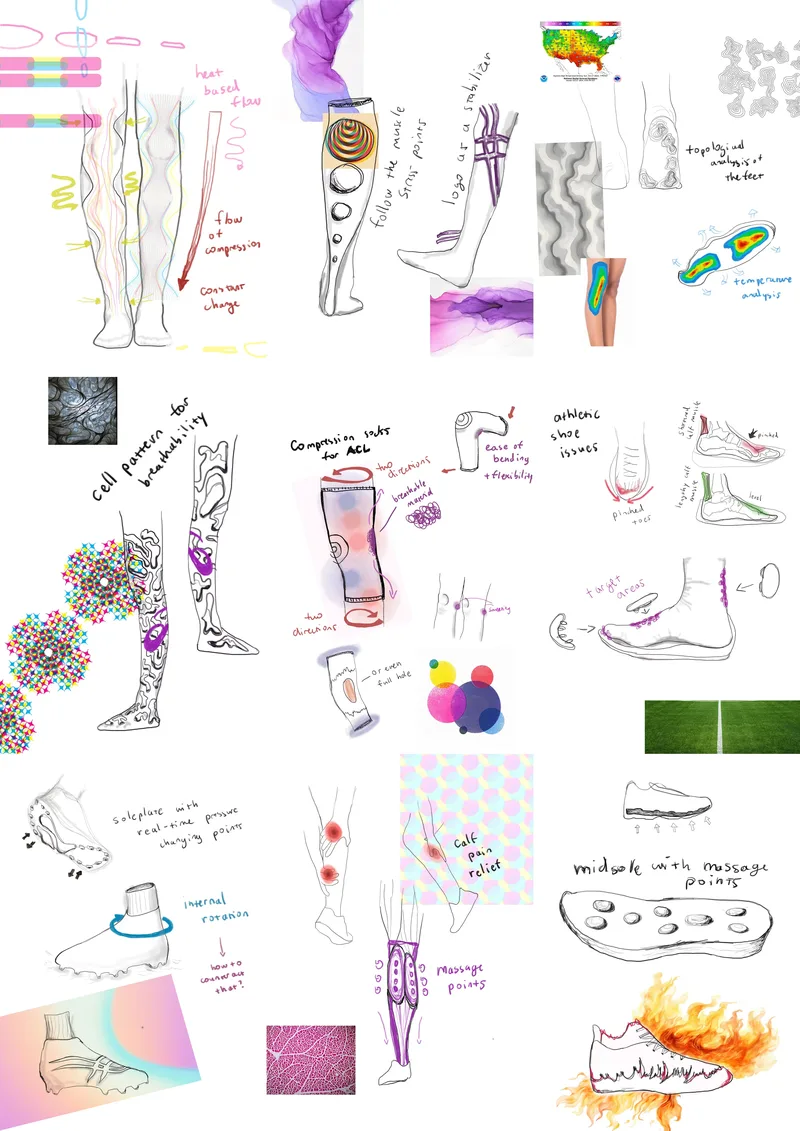 heat
based
flow
flow
of
compression
constant
change
follow the muscle
stress points
logo as a stabilizer
topological
analysis of
the feet
temperature
analysis
cell pattern for
breathability
Compression socks
for ACL
two
directions
breathable
material
two
directions
ease of
bending
+ flexibility
or even
full hole
athletic
shoe
issues
pinched
toes
shortened
calf muscle
pinched
lengthy calf
muscle
level
target
areas
soleplate with
real-time pressure
changing points
internal
rotation
how to
counteract
that?
calf
pain
relief
massage
points
midsole with massage
points